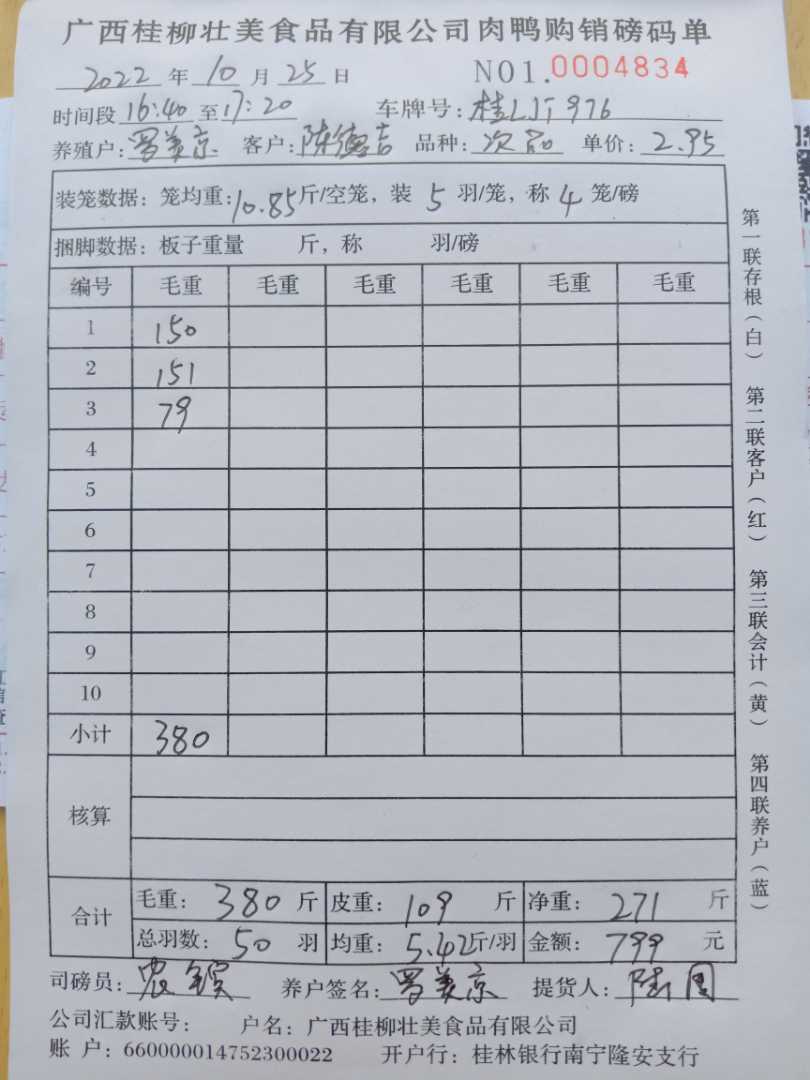 广西桂柳壮美食品有限公司肉鸭购销磅码单
2022 年 10 月 25 日 NO1.0004834
时间段 16:40 至 17:20 车牌号: 桂LJT976
养殖户: 罗美京 客户: 陈德吉 品种: 次品 单价: 2.95
装笼数据: 笼均重: 10.85 斤/空笼, 装 5 羽/笼, 称 4 笼/磅
捆脚数据: 板子重量 斤, 称 羽/磅
编号 毛重 毛重 毛重 毛重 毛重 毛重
1 150
2 151
3 79
4
5
6
7
8
9
10
小计 380
核算
合计
毛重: 380 斤 皮重: 109 斤 净重: 271 斤
总羽数: 50 羽 均重: 5.42 斤/羽 金额: 799 元
司磅员: 养户签名: 罗美京 提货人:
公司汇款账号: 户名: 广西桂柳壮美食品有限公司
账 户: 660000014752300022 开户行: 桂林银行南宁隆安支行
第一联存根(白) 第二联客户(红) 第三联会计(黄) 第四联养户(蓝)